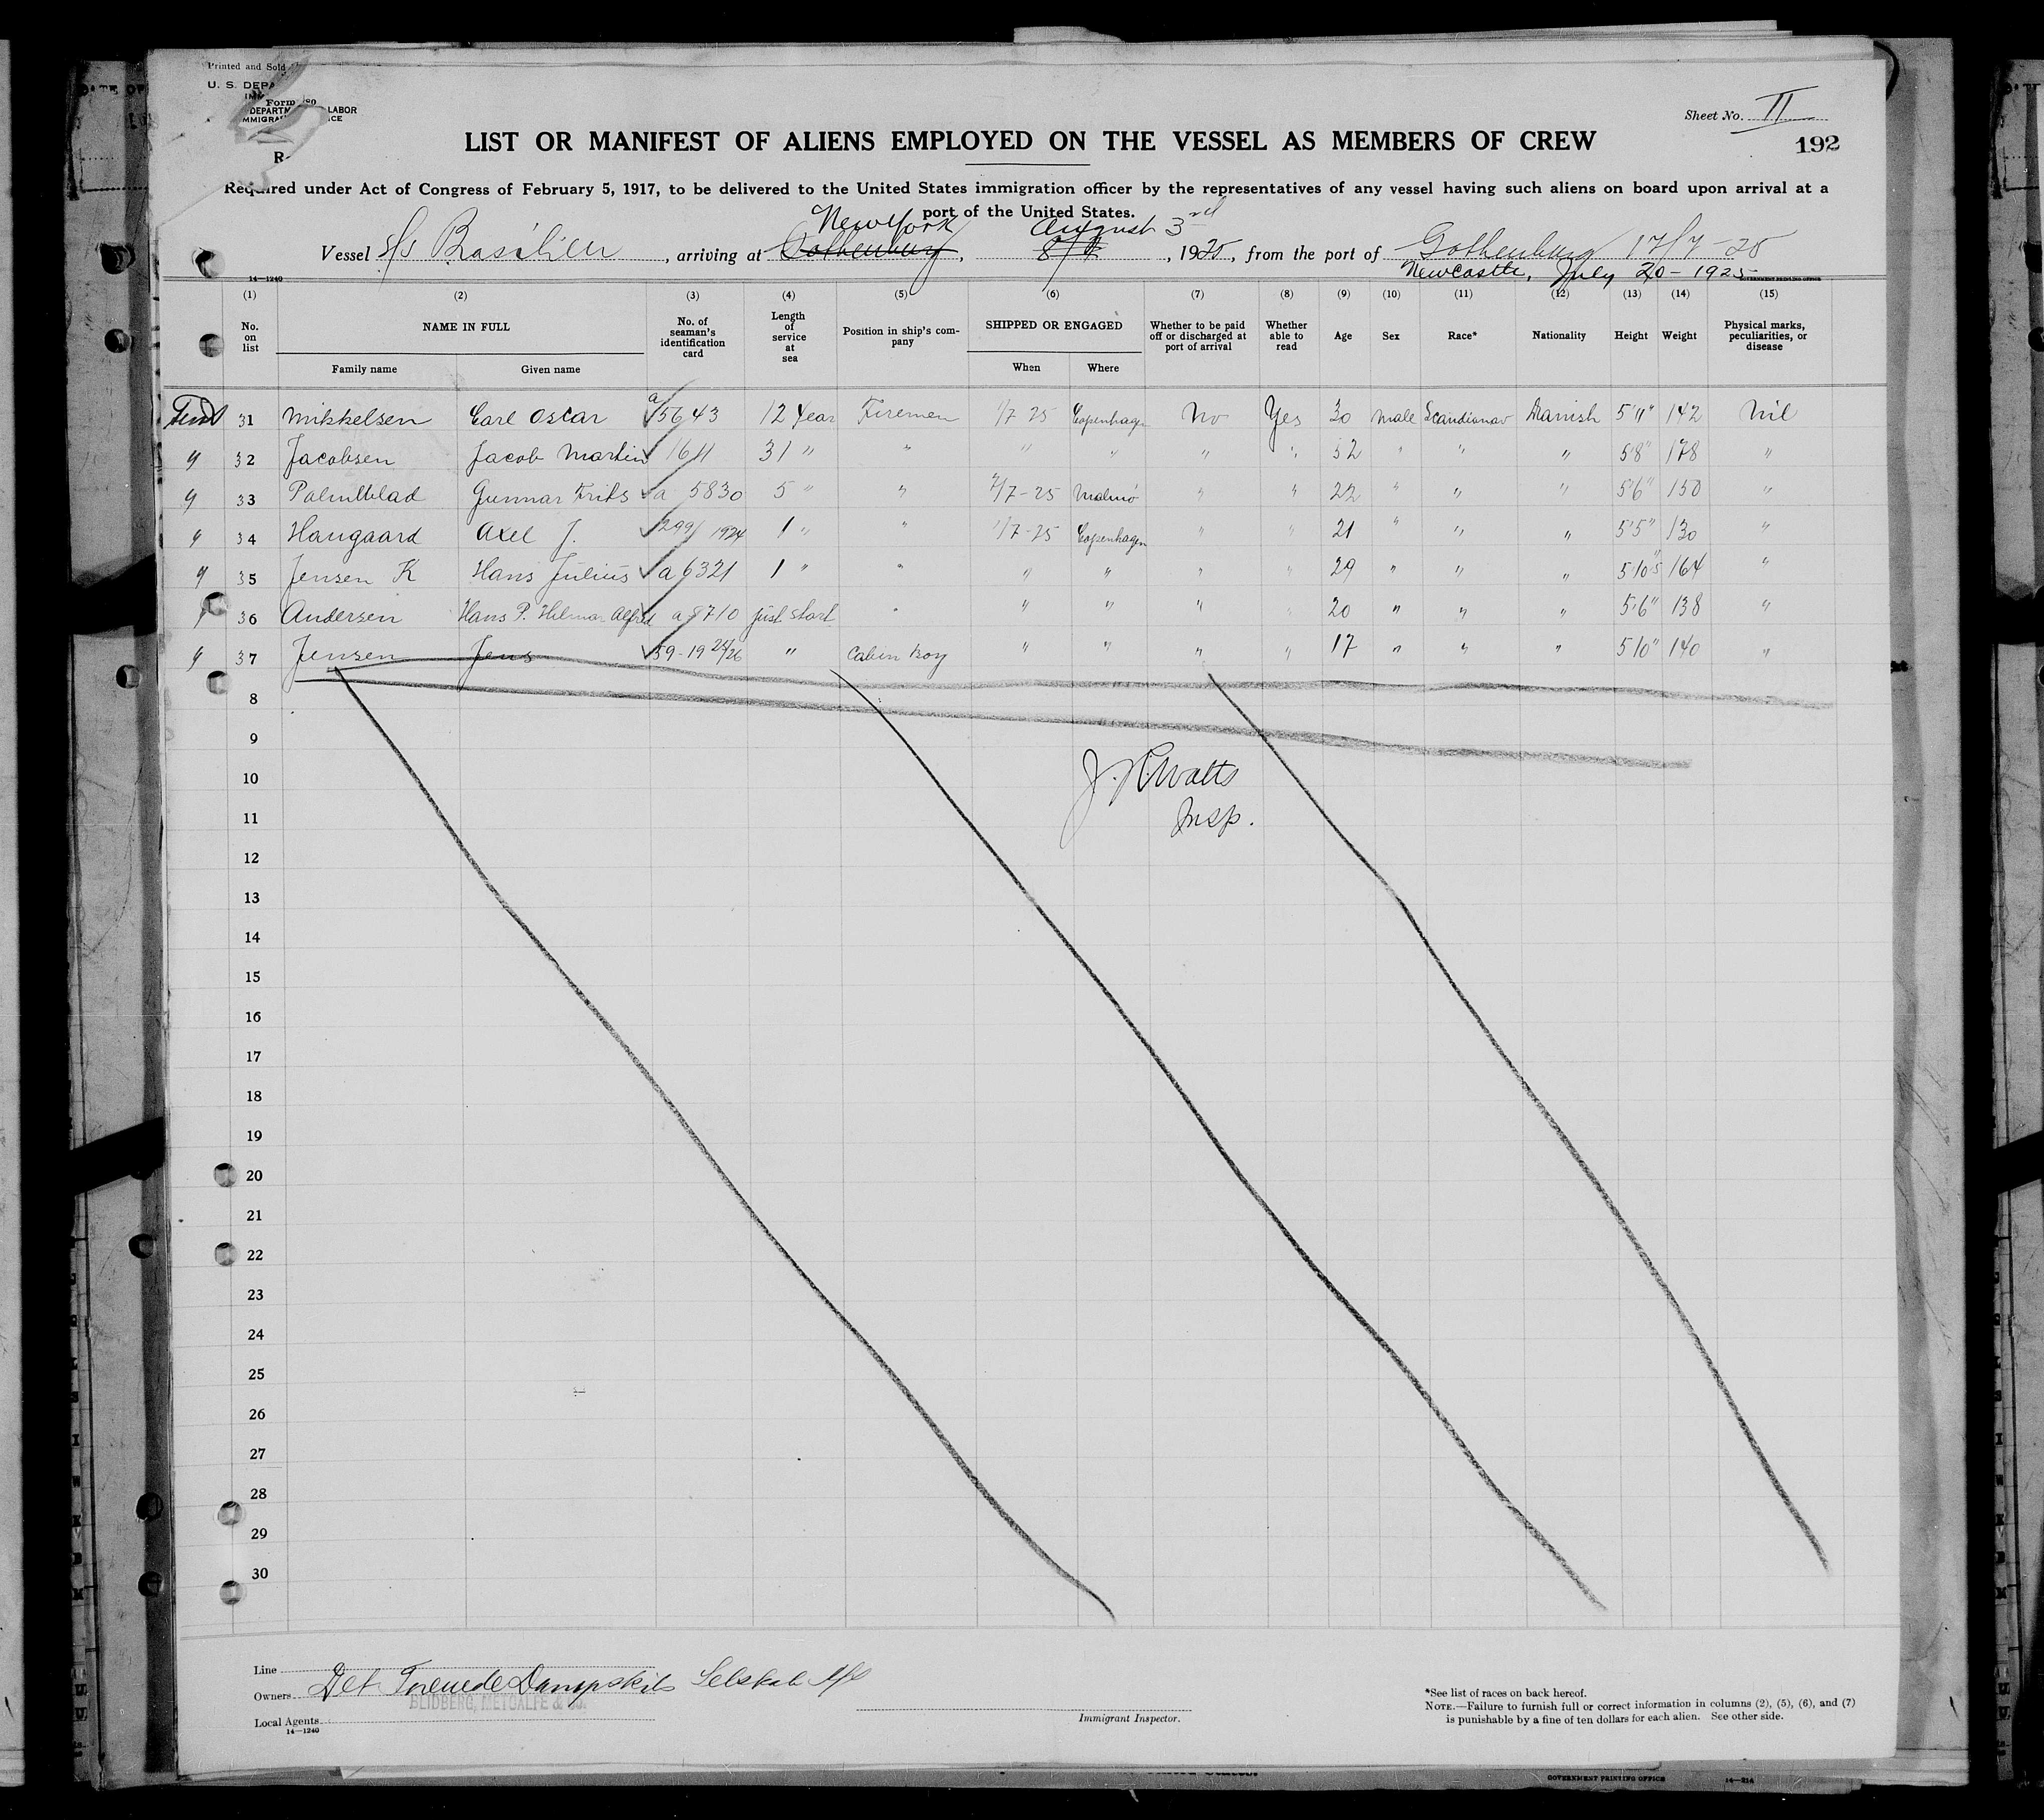 Printed and Sold
U. S. DEPA
Form 680
DEPARTM LABOR
IMMIGRA ICE
Sheet No. II
192
LIST OR MANIFEST OF ALIENS EMPLOYED ON THE VESSEL AS MEMBERS OF CREW
Required under Act of Congress of February 5, 1917, to be delivered to the United States immigration officer by the representatives of any vessel having such aliens on board upon arrival at a
port of the United States.
New York August 3rd
Vessel S/S Brasilien, arriving at Gothenburg, , 1925, from the port of Gothenburg 17/7-25
Newcastle, July 20-1925
14—1240 GOVERNMENT PRINTING OFFICE
(1) (2) (3) (4) (5) (6) (7) (8) (9) (10) (11) (12) (13) (14) (15)
No. on list NAME IN FULL Family name Given name No. of seaman's identification card Length of service at sea Position in ship's company SHIPPED OR ENGAGED When Where Whether to be paid off or discharged at port of arrival Whether able to read Age Sex Race* Nationality Height Weight Physical marks, peculiarities, or disease
31 Mikkelsen Carl Oscar a 5643 12 Year Firemen 1/7 25 Copenhagen No Yes 30 Male Scandinav Danish 5'11" 142 Nil
" 32 Jacobsen Jacob Martin 1611 31 " " " " " " 52 " " " 5'8" 178 "
" 33 Palmblad Gunnar Frits a 5830 5 " " 2/7-25 Malmö " " 22 " " " 5'6" 150 "
" 34 Haugaard Axel J. 299/1924 1 " " 1/7-25 Copenhagen " " 21 " " " 5'5" 130 "
" 35 Jensen K Hans Julius a 6321 1 " " " " " " 29 " " " 5'10"5 164 "
" 36 Andersen Hans P. Hilmar Alfred a 8710 just start " " " " " 20 " " " 5'6" 138 "
" 37 Jensen Jens 59-19 25/26 " Cabin boy " " " " 17 " " " 5'10" 140 "
8
9
10
J. R. Watts
11
Insp.
12
13
14
15
16
17
18
19
20
21
22
23
24
25
26
27
28
29
30
Line
Owners Det Forenede Dampskibs Selskab A/S
BLIDBERG, METCALFE & CO.
Local Agents
14—1240
Immigrant Inspector.
*See list of races on back hereof.
NOTE.—Failure to furnish full or correct information in columns (2), (5), (6), and (7)
is punishable by a fine of ten dollars for each alien. See other side.
GOVERNMENT PRINTING OFFICE 14—21A